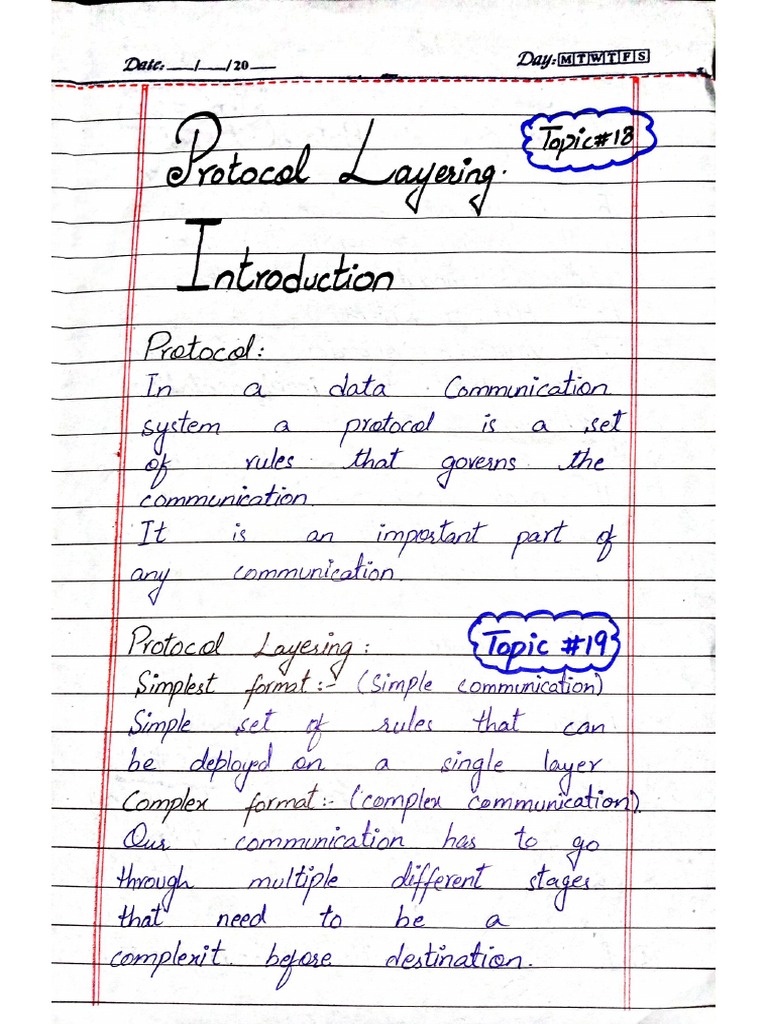 Date: ___/___/20___ Day: M T W T F S
Topic#18
Protocol Layering.
Introduction
Protocol:
In a data Communication
system a protocol is a set
of rules that governs the
communication.
It is an important part of
any communication.
Protocol Layering: Topic #19
Simplest format:- (Simple communication)
Simple set of rules that can
be deployed on a single layer
Complex format:- (complex communication).
Our communication has to go
through multiple different stages
that need to be a
complexit before destination.